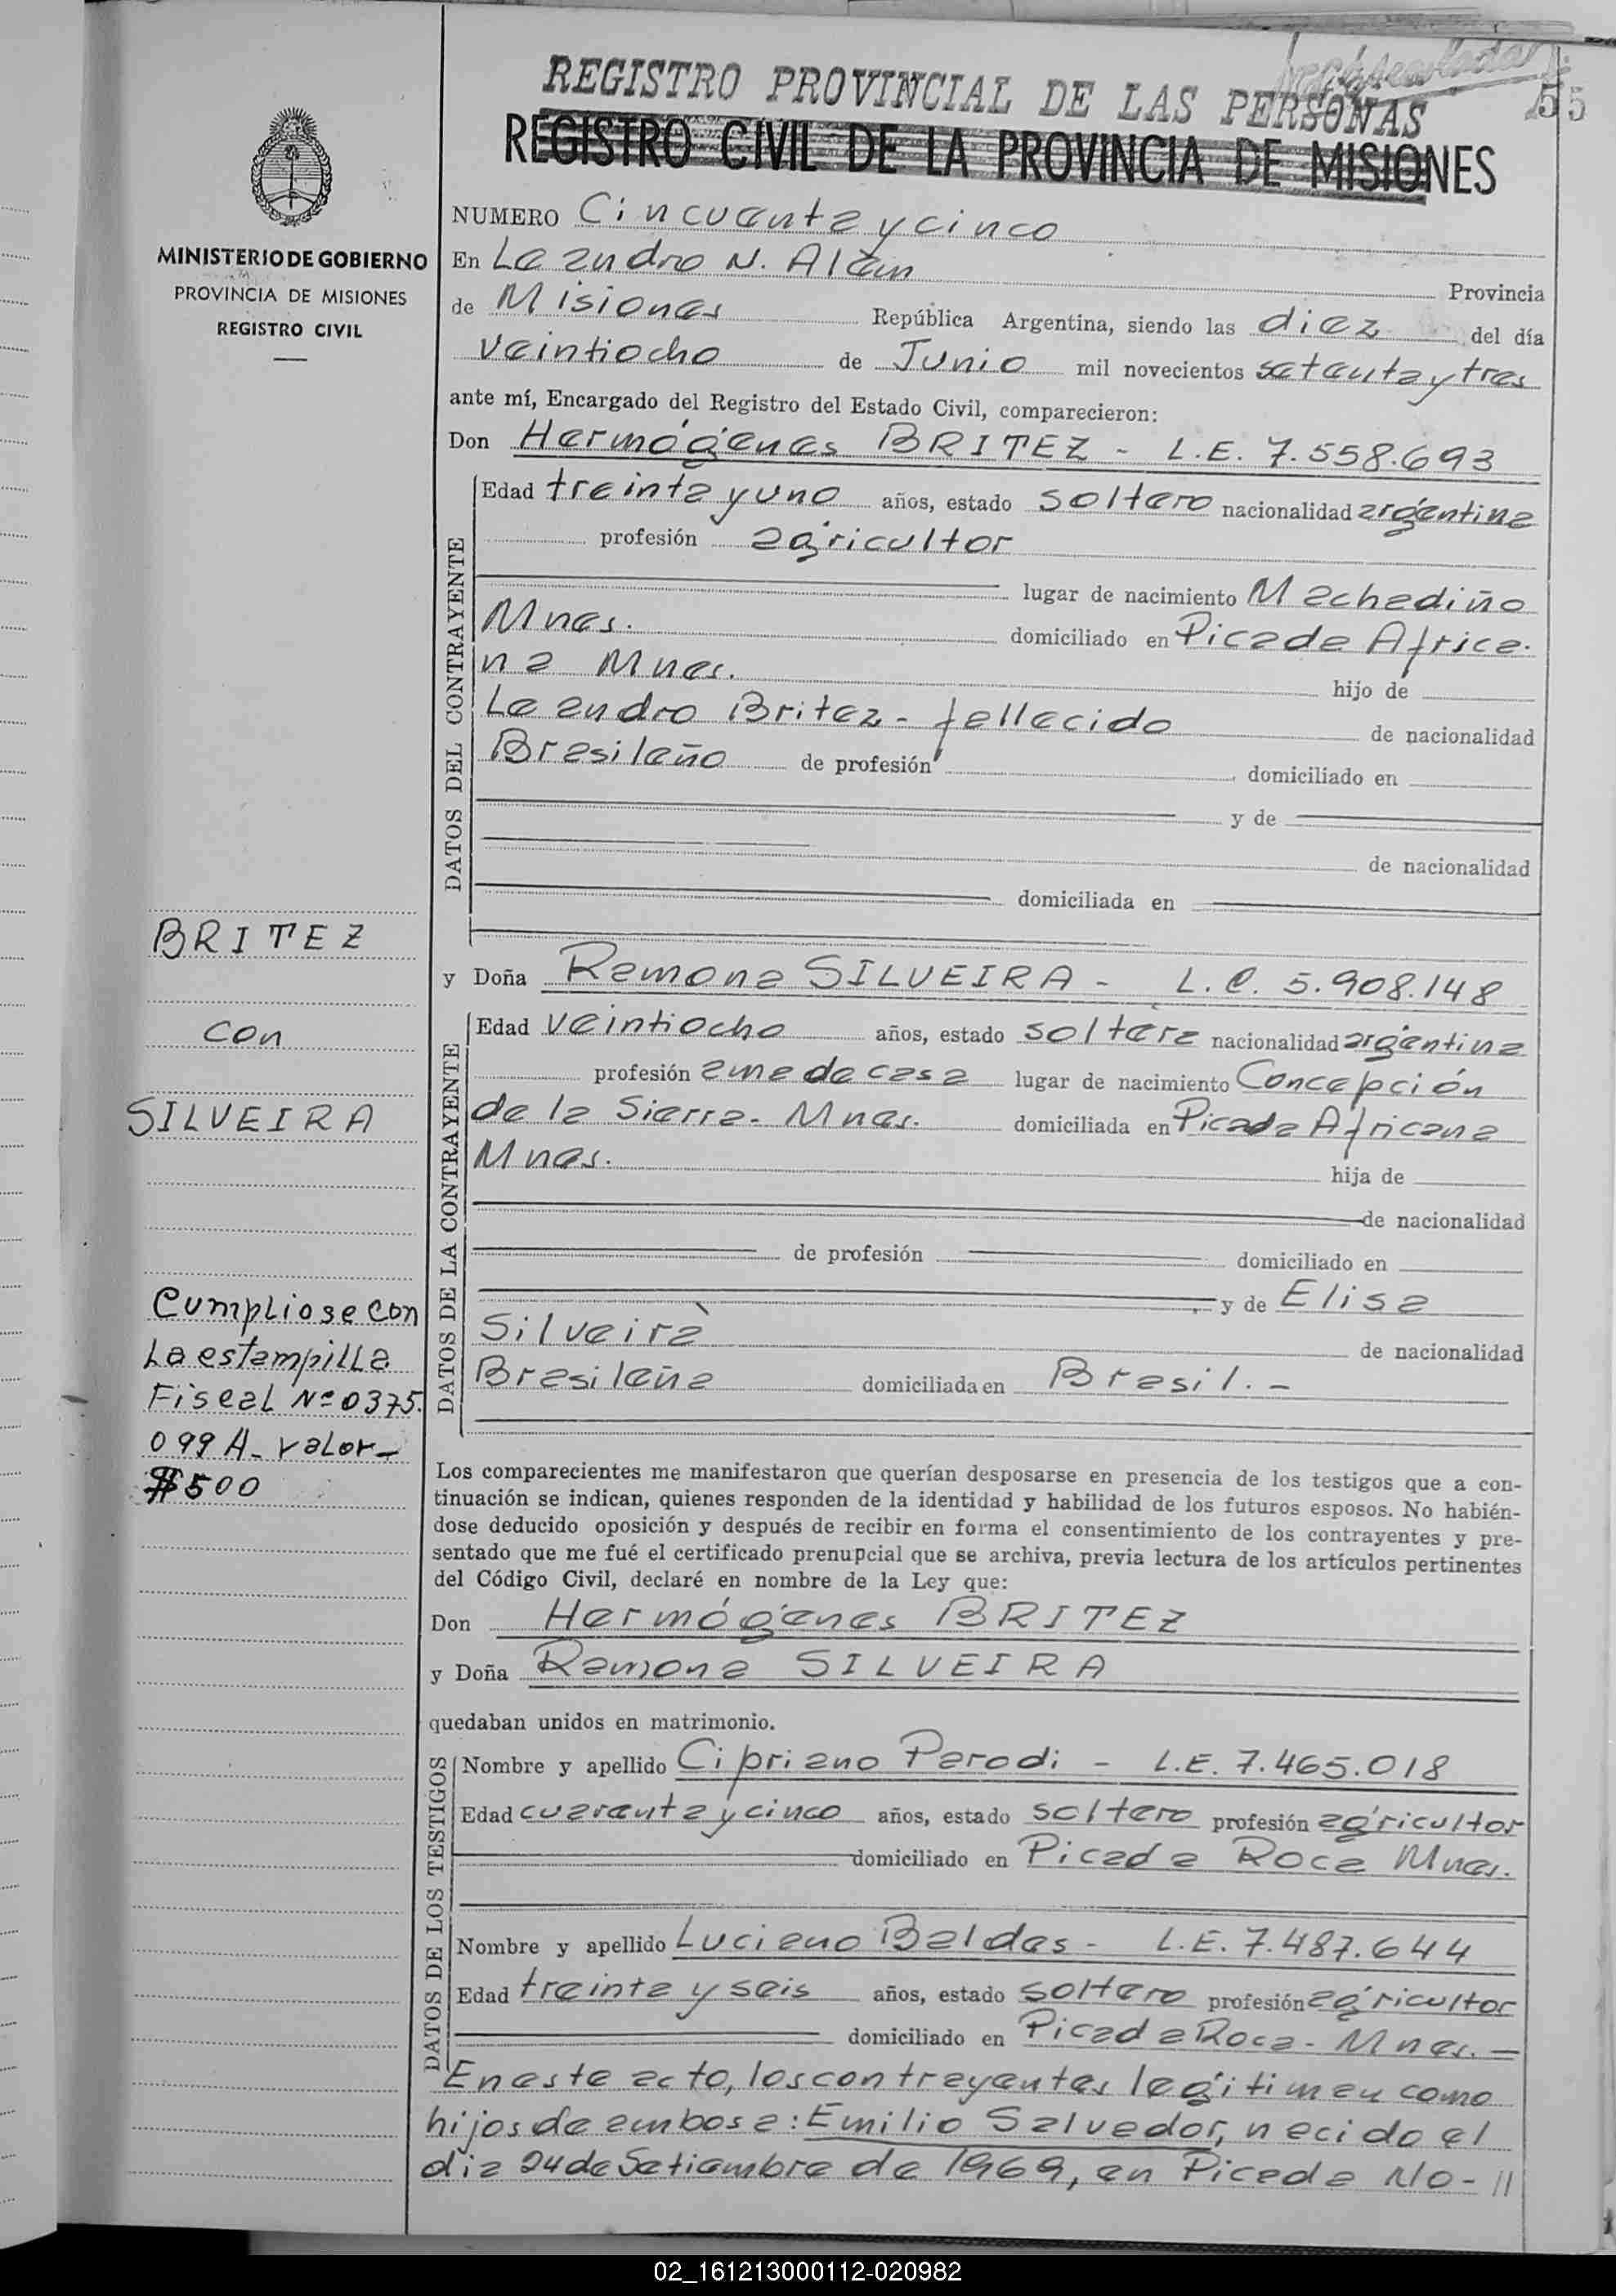 REGISTRO PROVINCIAL DE LAS PERSONAS
55
REGISTRO CIVIL DE LA PROVINCIA DE MISIONES
MINISTERIO DE GOBIERNO
PROVINCIA DE MISIONES
REGISTRO CIVIL
NUMERO Cincuenta y cinco
En Leandro N. Alem Provincia
de Misiones República Argentina, siendo las diez del día
veintiocho de Junio mil novecientos setenta y tres
ante mí, Encargado del Registro del Estado Civil, comparecieron:
Don Hermógenes BRITEZ - L.E. 7.558.693
DATOS DEL CONTRAYENTE
Edad treinta y uno años, estado soltero nacionalidad argentina
profesión agricultor
lugar de nacimiento Machadiño
Mnes. domiciliado en Picada Africa-
na Mnes. hijo de
Leandro Britez - fallecido de nacionalidad
Brasileño de profesión domiciliado en
y de
de nacionalidad
domiciliada en
BRITEZ
con
SILVEIRA
y Doña Ramona SILVEIRA - L.C. 5.908.148
DATOS DE LA CONTRAYENTE
Edad veintiocho años, estado soltera nacionalidad argentina
profesión ama de casa lugar de nacimiento Concepción
de la Sierra - Mnes. domiciliada en Picada Africana
Mnes. hija de
de nacionalidad
de profesión domiciliado en
y de Elisa
Silveira de nacionalidad
Brasileña domiciliada en Brasil. -
Cumpliose con
La estampilla
Fiscal Nº 0375.
099 A - valor -
$500
Los comparecientes me manifestaron que querían desposarse en presencia de los testigos que a con-
tinuación se indican, quienes responden de la identidad y habilidad de los futuros esposos. No habién-
dose deducido oposición y después de recibir en forma el consentimiento de los contrayentes y pre-
sentado que me fué el certificado prenupcial que se archiva, previa lectura de los artículos pertinentes
del Código Civil, declaré en nombre de la Ley que:
Don Hermógenes BRITEZ
y Doña Ramona SILVEIRA
quedaban unidos en matrimonio.
DATOS DE LOS TESTIGOS
Nombre y apellido Cipriano Parodi - L.E. 7.465.018
Edad cuarenta y cinco años, estado soltero profesión agricultor
domiciliado en Picada Roca Mnes.
Nombre y apellido Luciano Baldas - L.E. 7.487.644
Edad treinta y seis años, estado soltero profesión agricultor
domiciliado en Picada Roca - Mnes. -
En este acto, los contrayentes legitiman como
hijos de ambos a: Emilio Salvador, nacido el
dia 24 de Setiembre de 1969, en Picada No- //
02_161213000112-020982